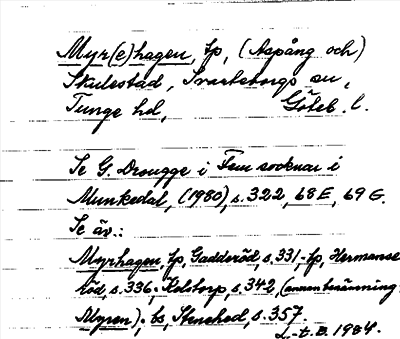 Myr(e)hagen, tp, (Aspång och)
Skulestad, Svarteborgs sn,
Tunge hd, Göteb. l.
Se G. Drougge i Fem socknar i
Munkedal, (1980), s. 322, 68E, 69G.
Se äv.:
Myrhagen, tp, Gadderöd, s. 331, - tp, Hermanse-
röd, s. 336, Kolstorp, s. 342, (annan benämning:
Myren), ts, Stenehed, s. 357.
L-t. B. 1984.